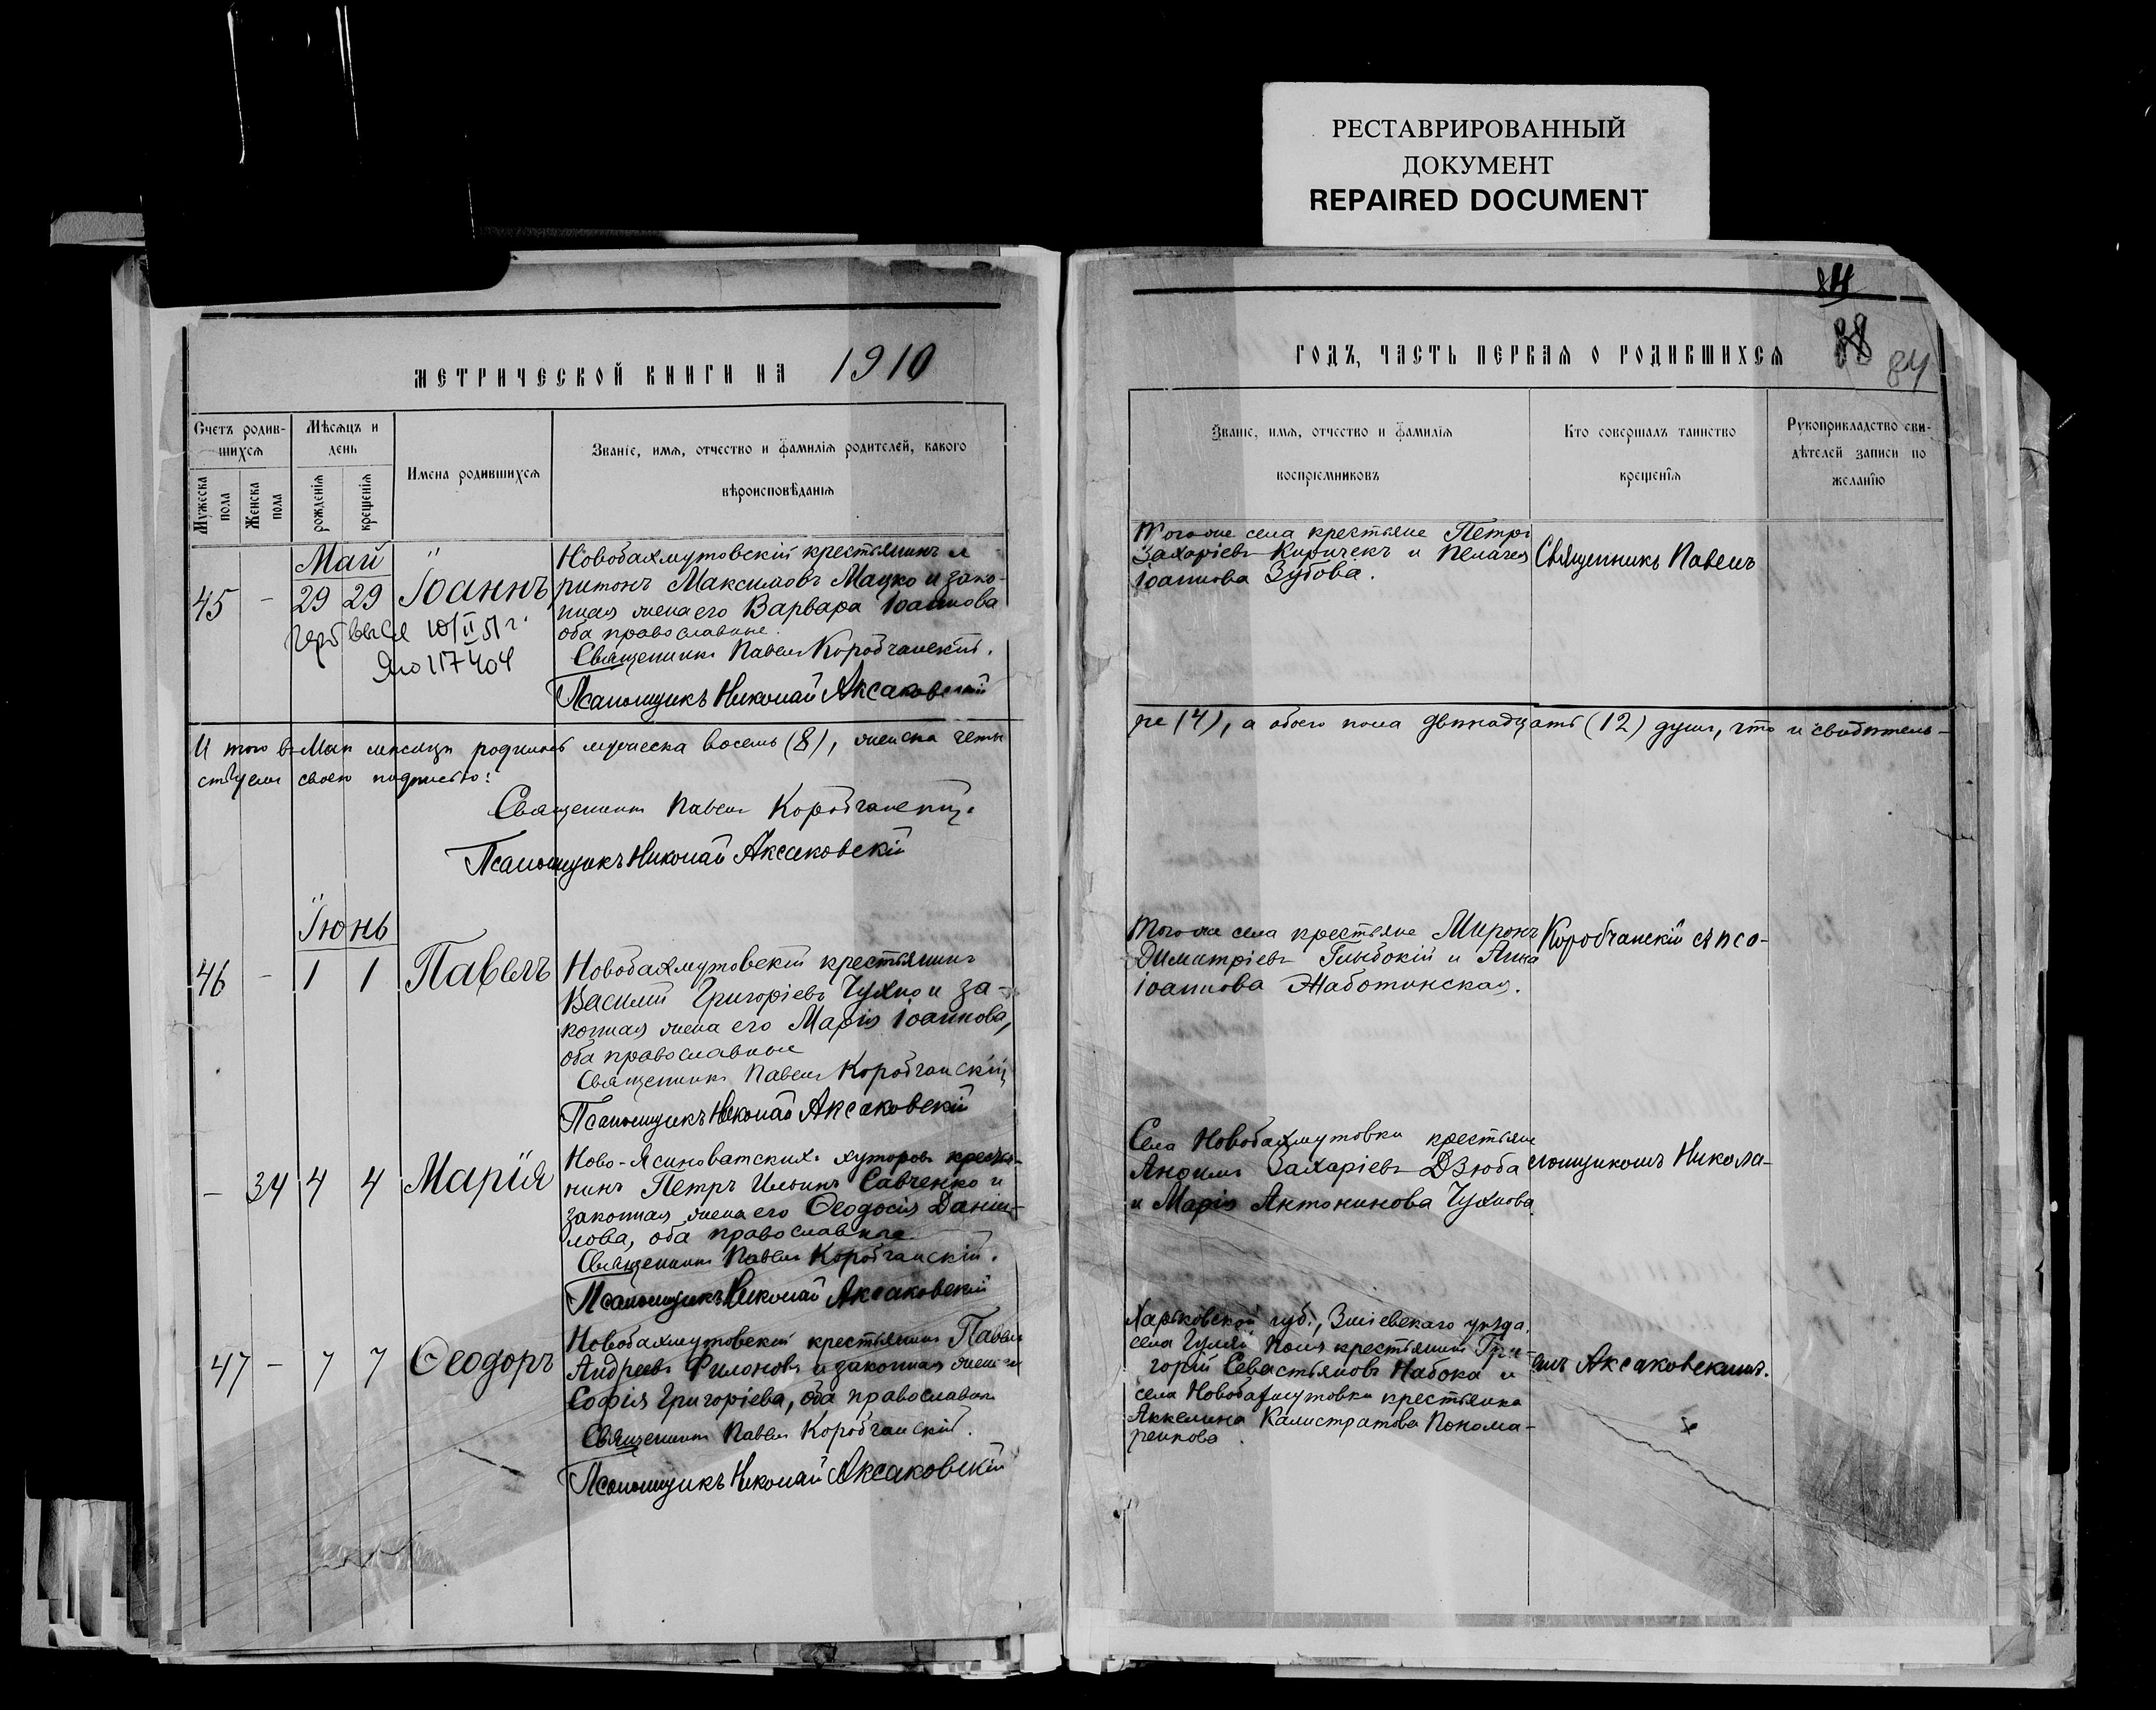 РЕСТАВРИРОВАННЫЙ
ДОКУМЕНТ
REPAIRED DOCUMENT
МЕТРИЧЕСКОЙ КНИГИ НА 1910
Счетъ родив-
шихся
Мѣсяцъ и
день
Имена родившихся
Званіе, имя, отчество и фамилія родителей, какого
вѣроисповѣданія
Мужеска
пола
Женска
пола
рожденія
крещенія
Май
45 - 29 29 Іоаннъ
Новобахмутовскій крестьянинъ
ритонъ Максимовъ Мацко и зако-
нная жена его Варвара Іоаннова
оба православные.
Священникъ Павелъ Коробчанскій.
Псаломщикъ Николай Аксаковскій
10/II 51 г.
117404
И того въ Маѣ мѣсяцѣ родилось мужеска восемь (8), женска четы
ствуемъ своею подписью:
Священникъ Павелъ Коробчанскій.
Псаломщикъ Николай Аксаковскій
Іюнь
46 - 1 1 Павелъ
Новобахмутовскій крестьянинъ
Василій Григоріевъ Чухно и за-
конная жена его Марія Іоаннова,
оба православные
Священникъ Павелъ Коробчанскій
Псаломщикъ Николай Аксаковскій
- 34 4 4 Марія
Ново-Ясиноватскихъ хуторовъ крестья-
нинъ Петръ Ильинъ Савченко и
законная жена его Ѳеодосія Даніи-
лова, оба православные
Священникъ Павелъ Коробчанскій.
Псаломщикъ Николай Аксаковскій
47 - 7 7 Ѳеодоръ
Новобахмутовскій крестьянинъ Павелъ
Андреевъ Филоновъ и законная жена его
Софія Григоріева, оба православные
Священникъ Павелъ Коробчанскій.
Псаломщикъ Николай Аксаковскій
84
ГОДЪ, ЧАСТЬ ПЕРВАЯ О РОДИВШИХСЯ
88
84
Званіе, имя, отчество и фамилія
воспріемниковъ
Кто совершалъ таинство
крещенія
Рукоприкладство сви-
дѣтелей записи по
желанію
Того-же села крестьяне Петръ
Захаріевъ Киричекъ и Пелагея
Іоаннова Зубова.
Священникъ Павелъ
ре (4), а обоего пола двѣнадцать (12) душъ, что и свидѣтель-
Того-же села крестьяне Миронъ
Димитріевъ Глыбокій и Анна
Іоаннова Жаботинская.
Коробчанскій съ псо-
Села Новобахмутовки крестьяне
Захаріевъ Дзюба
и Марія Антонинова Чухнова.
ломщикомъ Никола-
Харьковской губ., Зміевскаго уѣзда,
села Гуляй Поля крестьянинъ Гри-
горій Севастьяновъ Набока и
села Новобахмутовки крестьянка
Аккелина Калистратова Понома-
ренкова
емъ Аксаковскимъ.